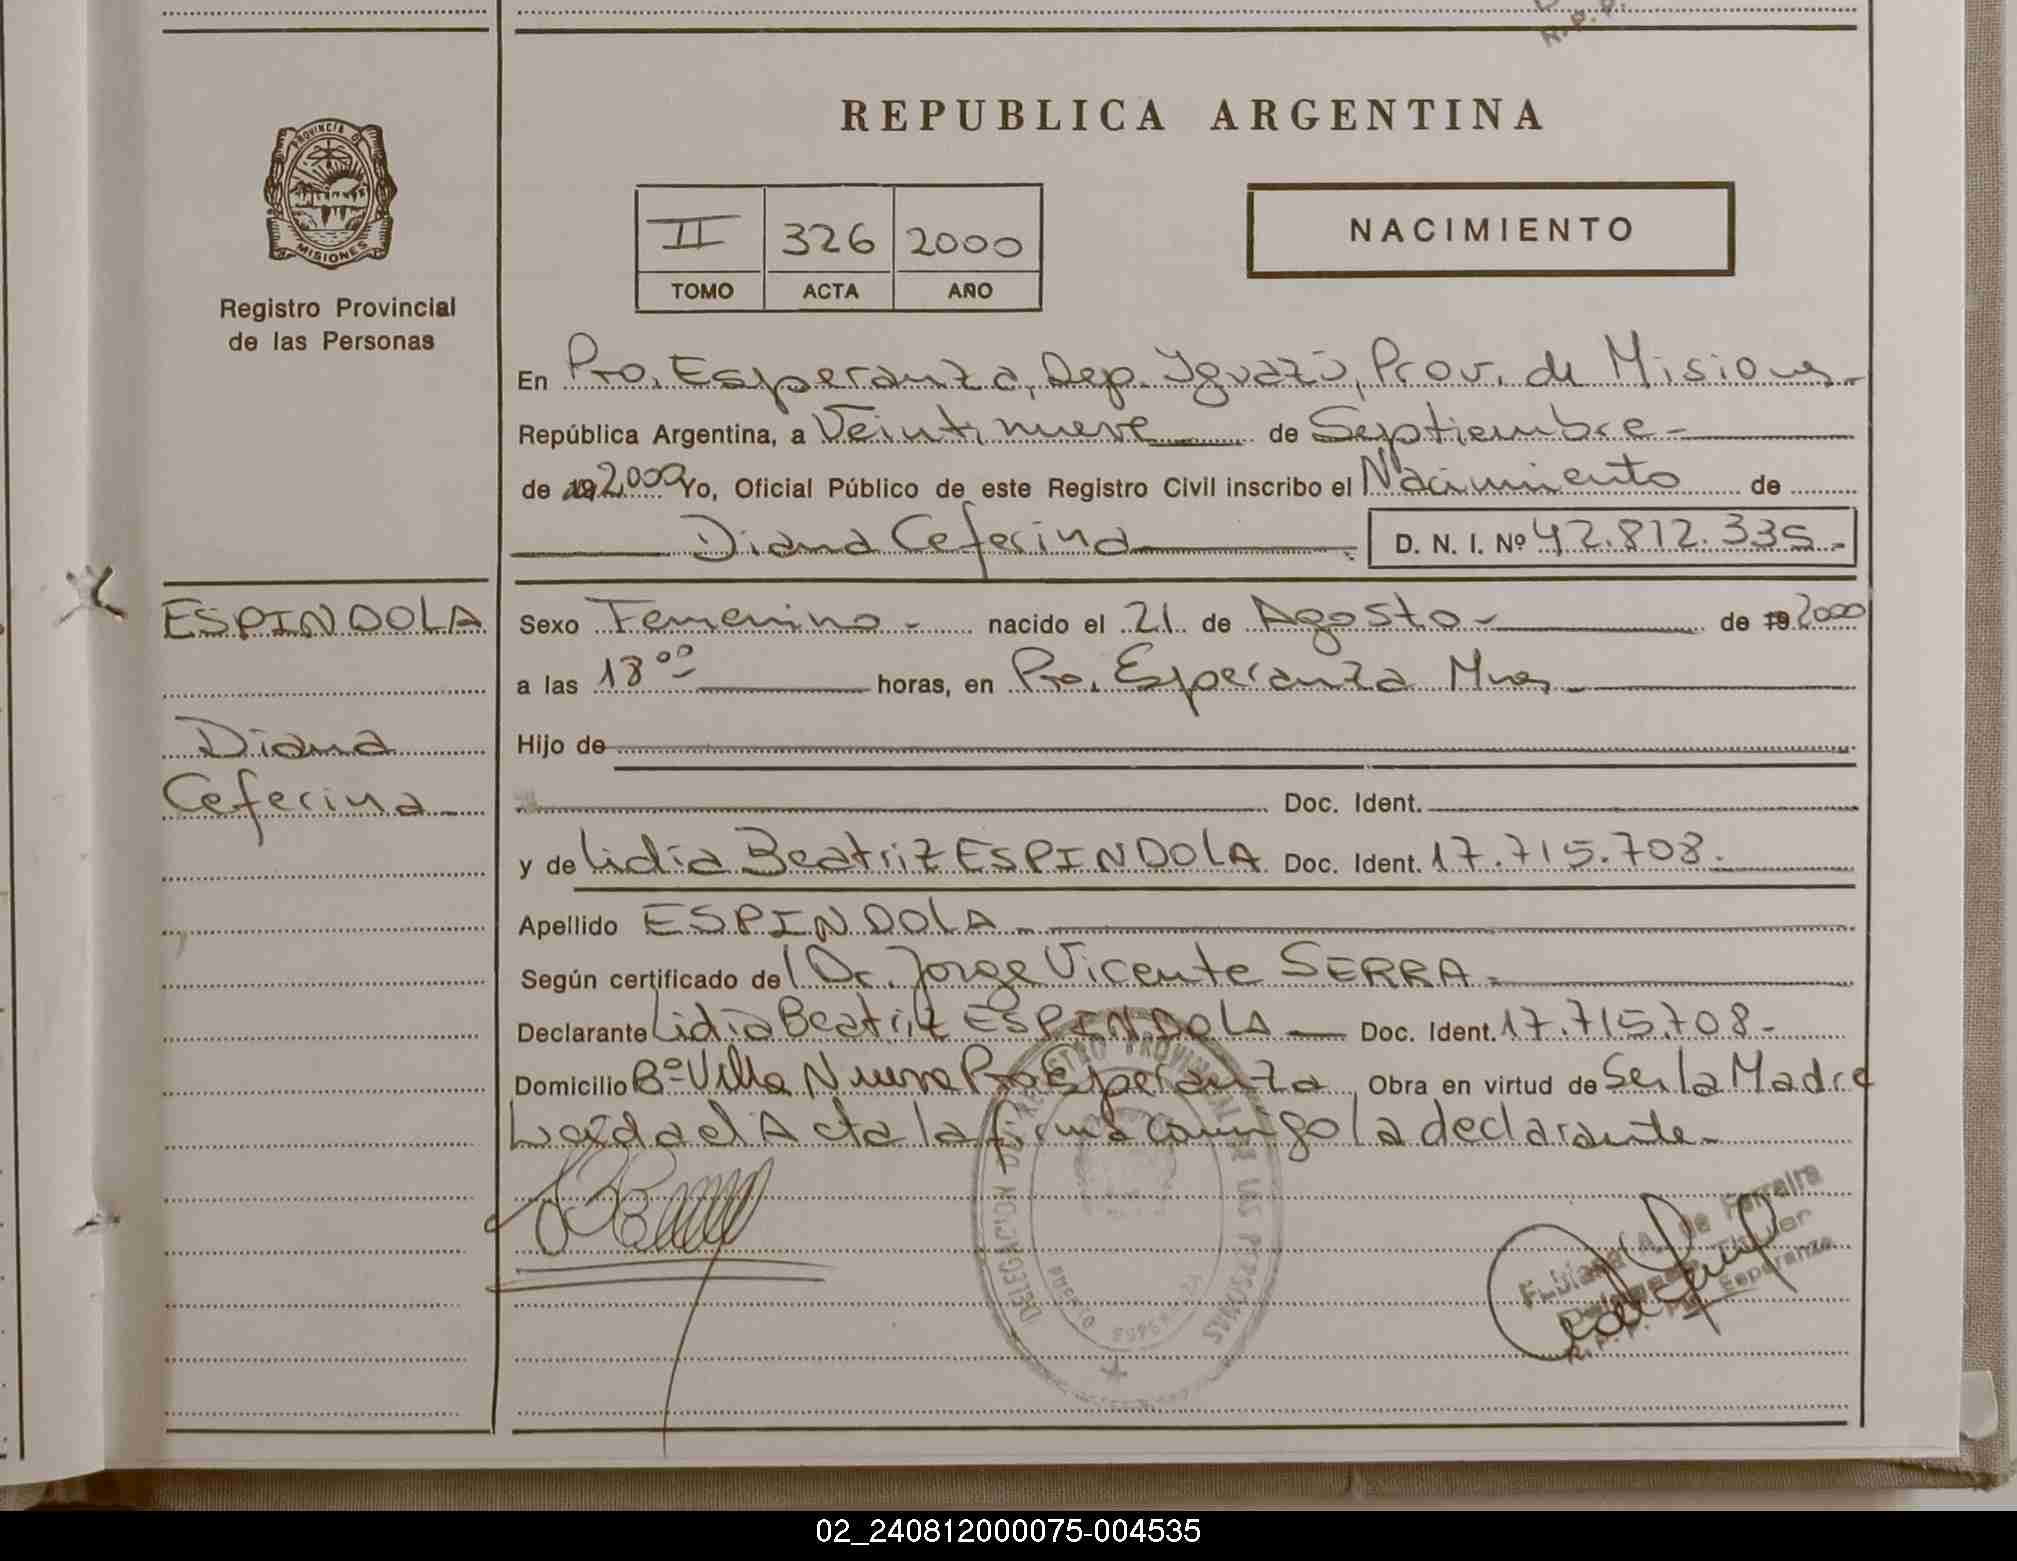 REPUBLICA ARGENTINA
PROVINCIA D
MISIONES
Registro Provincial
de las Personas
II 326 2000
TOMO ACTA AÑO
NACIMIENTO
En Pto. Esperanza, Dep. Iguazú, Prov. de Misiones
República Argentina, a Veintinueve de Septiembre
de 2000 Yo, Oficial Público de este Registro Civil inscribo el Nacimiento de
Diana Ceferina D. N. I. Nº 42.812.335
ESPINDOLA
Diana
Ceferina
Sexo Femenino nacido el 21 de Agosto de 19 2000
a las 18 00 horas, en Pto. Esperanza Mnes
Hijo de
Doc. Ident.
y de Lidia Beatriz ESPINDOLA Doc. Ident. 17.715.708.
Apellido ESPINDOLA
Según certificado del Dr. Jorge Vicente SERRA
Declarante Lidia Beatriz ESPINDOLA Doc. Ident. 17.715.708
Domicilio Bº Villa Nueva Pto Esperanza Obra en virtud de Ser la Madre
Leída el Acta la firma conmigo la declarante
DELEGACION DEL REGISTRO PROVINCIAL DE LAS PERSONAS
A. de Ferreira
Esperanza
02_240812000075-004535